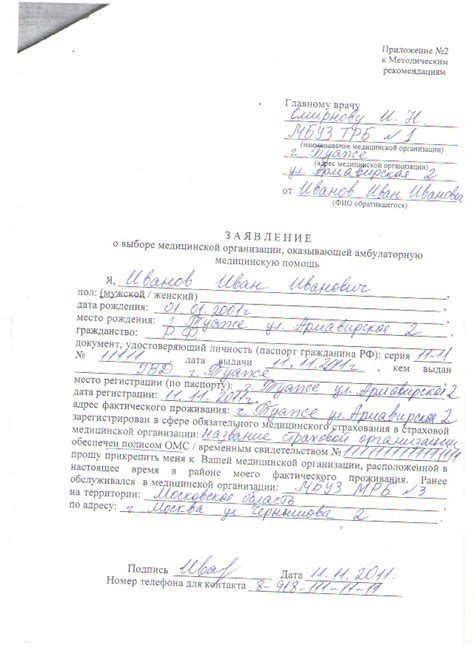 Приложение №2
к Методическим
рекомендациям
Главному врачу
Смирнову И. Н.
МБУЗ ТРБ №1
(наименование медицинской организации)
г. Туапсе
(адрес медицинской организации)
ул. Армавирская 2
от Иванов Иван Иванович
(ФИО обратившегося)
ЗАЯВЛЕНИЕ
о выборе медицинской организации, оказывающей амбулаторную
медицинскую помощь
Я, Иванов Иван Иванович,
пол: (мужской / женский)
дата рождения: 01.01.2001г,
место рождения: г. Туапсе ул. Армавирская 2,
гражданство: РФ,
документ, удостоверяющий личность (паспорт гражданина РФ): серия 11-11
№ 11111 дата выдачи 11.11.2011г, кем выдан
г. Туапсе
место регистрации (по паспорту): г. Туапсе ул. Армавирская 2
дата регистрации: 11.11.2011г,
адрес фактического проживания: г. Туапсе ул. Армавирская 2
зарегистрирован в сфере обязательного медицинского страхования в страховой
медицинской организации: Название страховой организации
обеспечен полисом ОМС / временным свидетельством №
прошу прикрепить меня к Вашей медицинской организации, расположенной в
настоящее время в районе моего фактического проживания. Ранее
обслуживался в медицинской организации: МБУЗ МРБ №3
на территории: Московское область,
по адресу: г. Москва ул Чернышова 2.
Подпись Ива Дата 11.11.2011.
Номер телефона для контакта 8-918-111-11-11